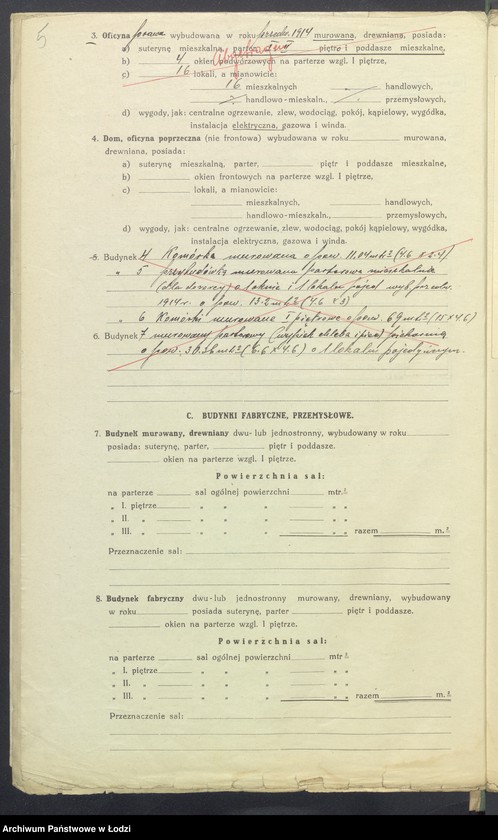 5
3. Oficyna prawa wybudowana w roku przedw. 1914 murowana, drewniana, posiada:
a) suterynę mieszkalną, parter, I II piętro i poddasze mieszkalne,
b) 4 okien podwórzowych na parterze wzgl. I piętrze,
c) 16 lokali, a mianowicie:
16 mieszkalnych handlowych,
handlowo-mieszkaln., przemysłowych,
d) wygody, jak: centralne ogrzewanie, zlew, wodociąg, pokój, kąpielowy, wygódka,
instalacja elektryczna, gazowa i winda.
4. Dom, oficyna poprzeczna (nie frontowa) wybudowana w roku murowana,
drewniana, posiada:
a) suterynę mieszkalną, parter, piętr i poddasze mieszkalne,
b) okien frontowych na parterze wzgl. I piętrze,
c) lokali, a mianowicie:
mieszkalnych, handlowych,
handlowo-mieszkaln., przemysłowych,
d) wygody, jak: centralne ogrzewanie, zlew, wodociąg, pokój kąpielowy, wygódka,
instalacja elektryczna, gazowa i winda.
5. Budynek 4 Komórka murowana o pow. 11,04 mtr² (4.6 x 2.4)
" 5 przybudówka murowana parterowa mieszkalna
(dla dozorcy) o 1 oknie i 1 lokalu pojed. wyb. przedw.
1914 r. o pow. 13.2 mtr² (4.6 x 3)
" 6 Komórki murowane I piętrowe o pow. 69 mtr² (15 x 4.6)
6. Budynek 7 murowany parterowy (wypiek chleba i piec) piekarnia
o pow. 30.36 mtr² (6.6 x 4.6) o 1 lokalu pojedyńczym.
C. BUDYNKI FABRYCZNE, PRZEMYSŁOWE.
7. Budynek murowany, drewniany dwu- lub jednostronny, wybudowany w roku
posiada: suterynę, parter, piętr i poddasze.
okien na parterze wzgl. I piętrze.
Powierzchnia sal:
na parterze sal ogólnej powierzchni mtr.²
" I. piętrze " " " " "
" II. " " " " " "
" III. " " " " " " razem m.²
Przeznaczenie sal:
8. Budynek fabryczny dwu-lub jednostronny murowany, drewniany, wybudowany
w roku posiada suterynę, parter piętr i poddasze.
okien na parterze wzgl. I piętrze.
Powierzchnia sal:
na parterze sal ogólnej powierzchni mtr.²
" I. piętrze " " " " "
" II. " " " " " "
" III. " " " " " " razem m.²
Przeznaczenie sal:
Archiwum Państwowe w Łodzi